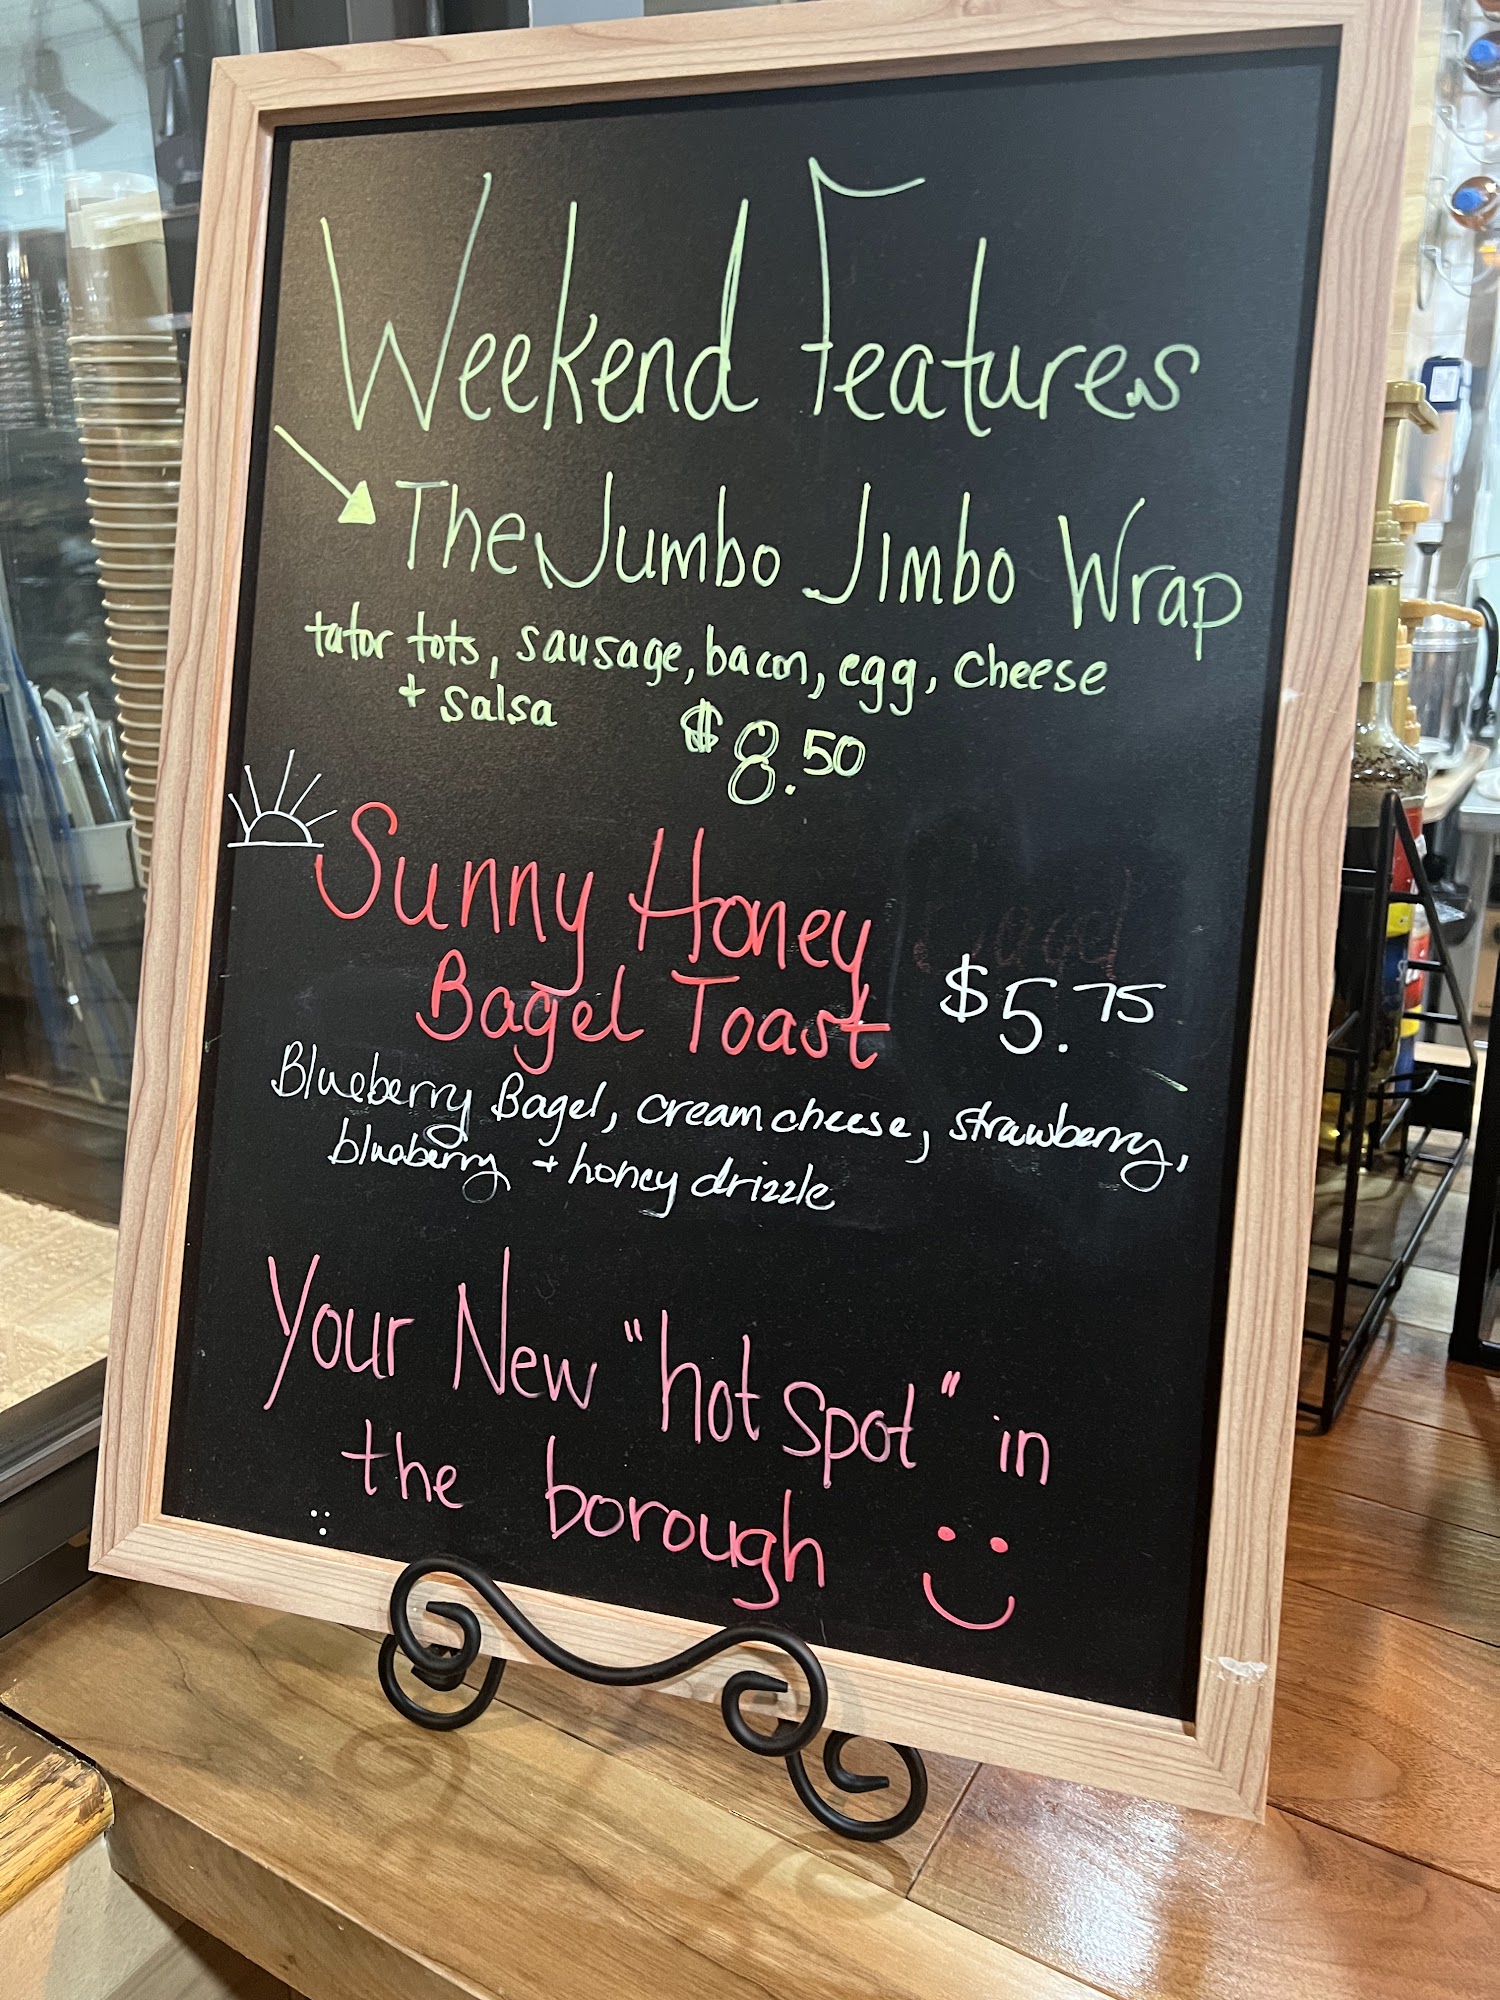 Weekend Features
The Jumbo Jimbo Wrap
tator tots, sausage, bacon, egg, cheese
+ salsa $8.50
Sunny Honey
Bagel Toast $5.75
Blueberry Bagel, cream cheese, strawberry,
blueberry + honey drizzle
Your New "hot spot" in
the borough